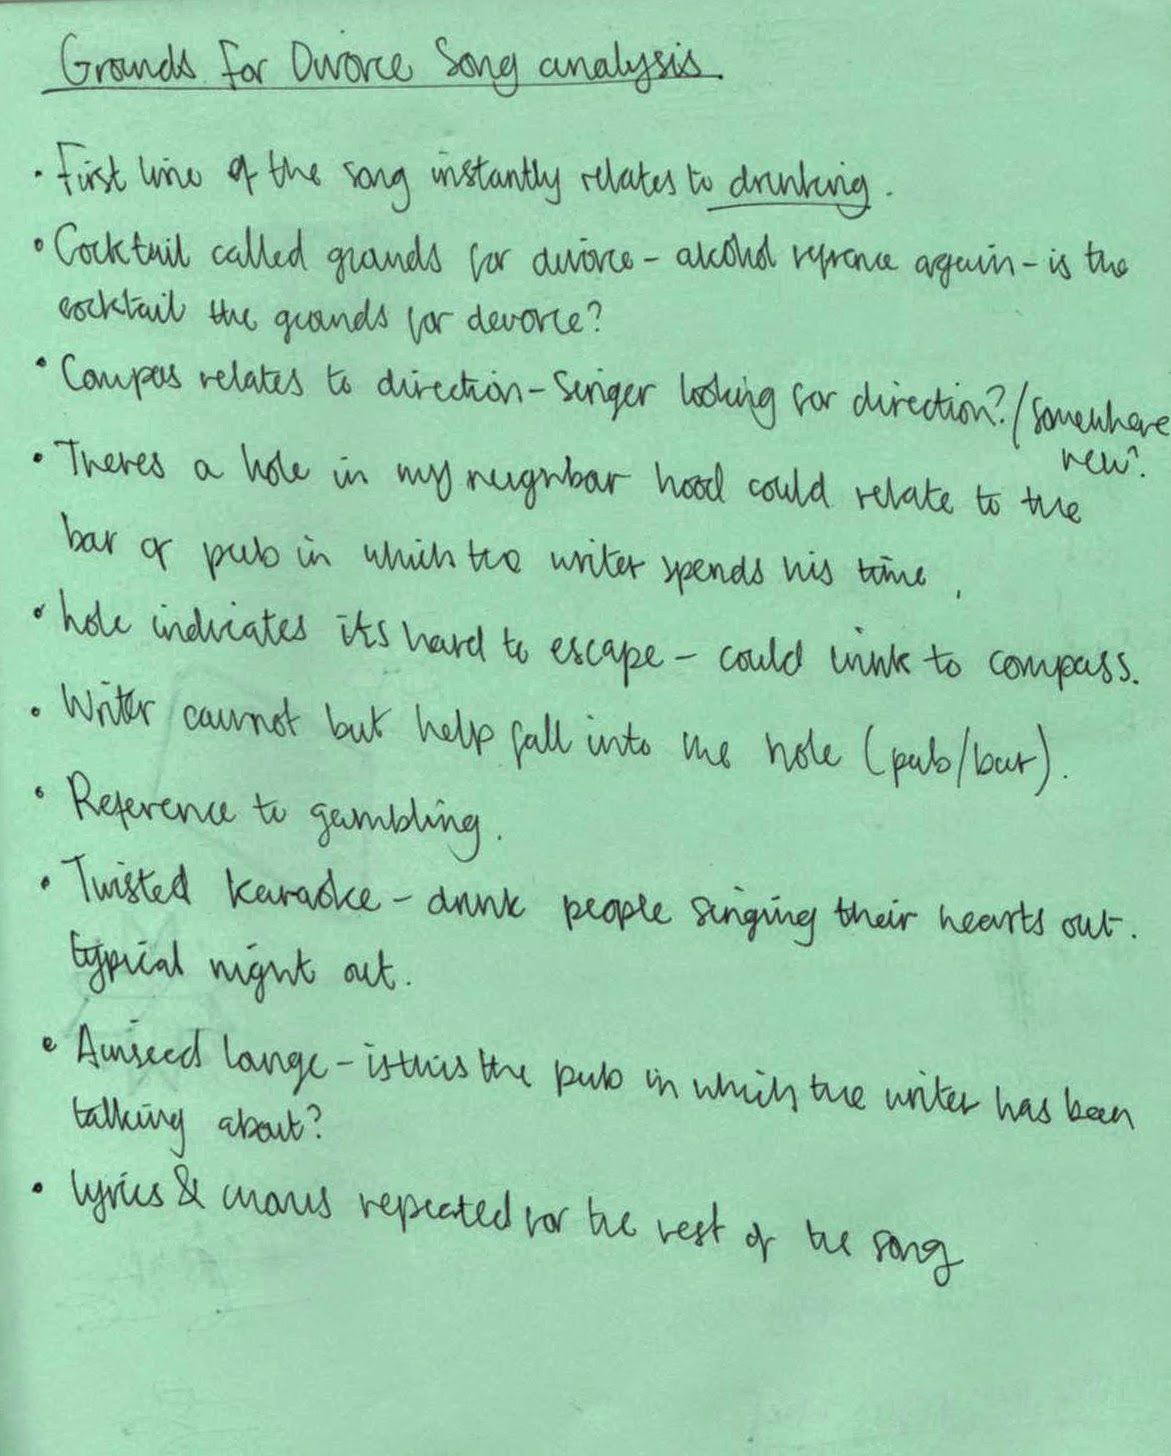 Grounds for Divorce Song analysis.
· First line of the song instantly relates to drinking.
· Cocktail called grounds for divorce - alcohol refrence again - is the
cocktail the grounds for devorce?
· Compas relates to direction - Singer looking for direction? / somewhere
new?
· Theres a hole in my neighbar hood could relate to the
bar or pub in which the writer spends his time.
· hole indicates its hard to escape - could link to compass.
· Writer cannot but help fall into the hole (pub/bar).
· Reference to gambling.
· Twisted karaoke - drunk people singing their hearts out.
typical night out.
· Aniseed lounge - is this the pub in which the writer has been
talking about?
· lyrics & chorus repeated for the rest of the song